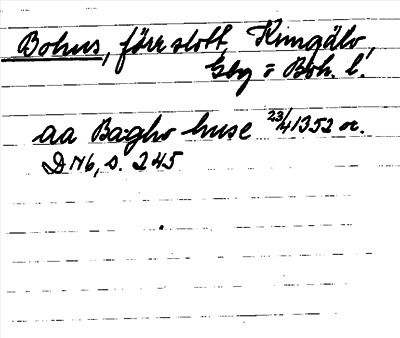 Bohus, förr slott, Kungälv,
Gbg o Boh. l.
aa Bagho huse 23/4 1352 or.
DN 6, s. 245